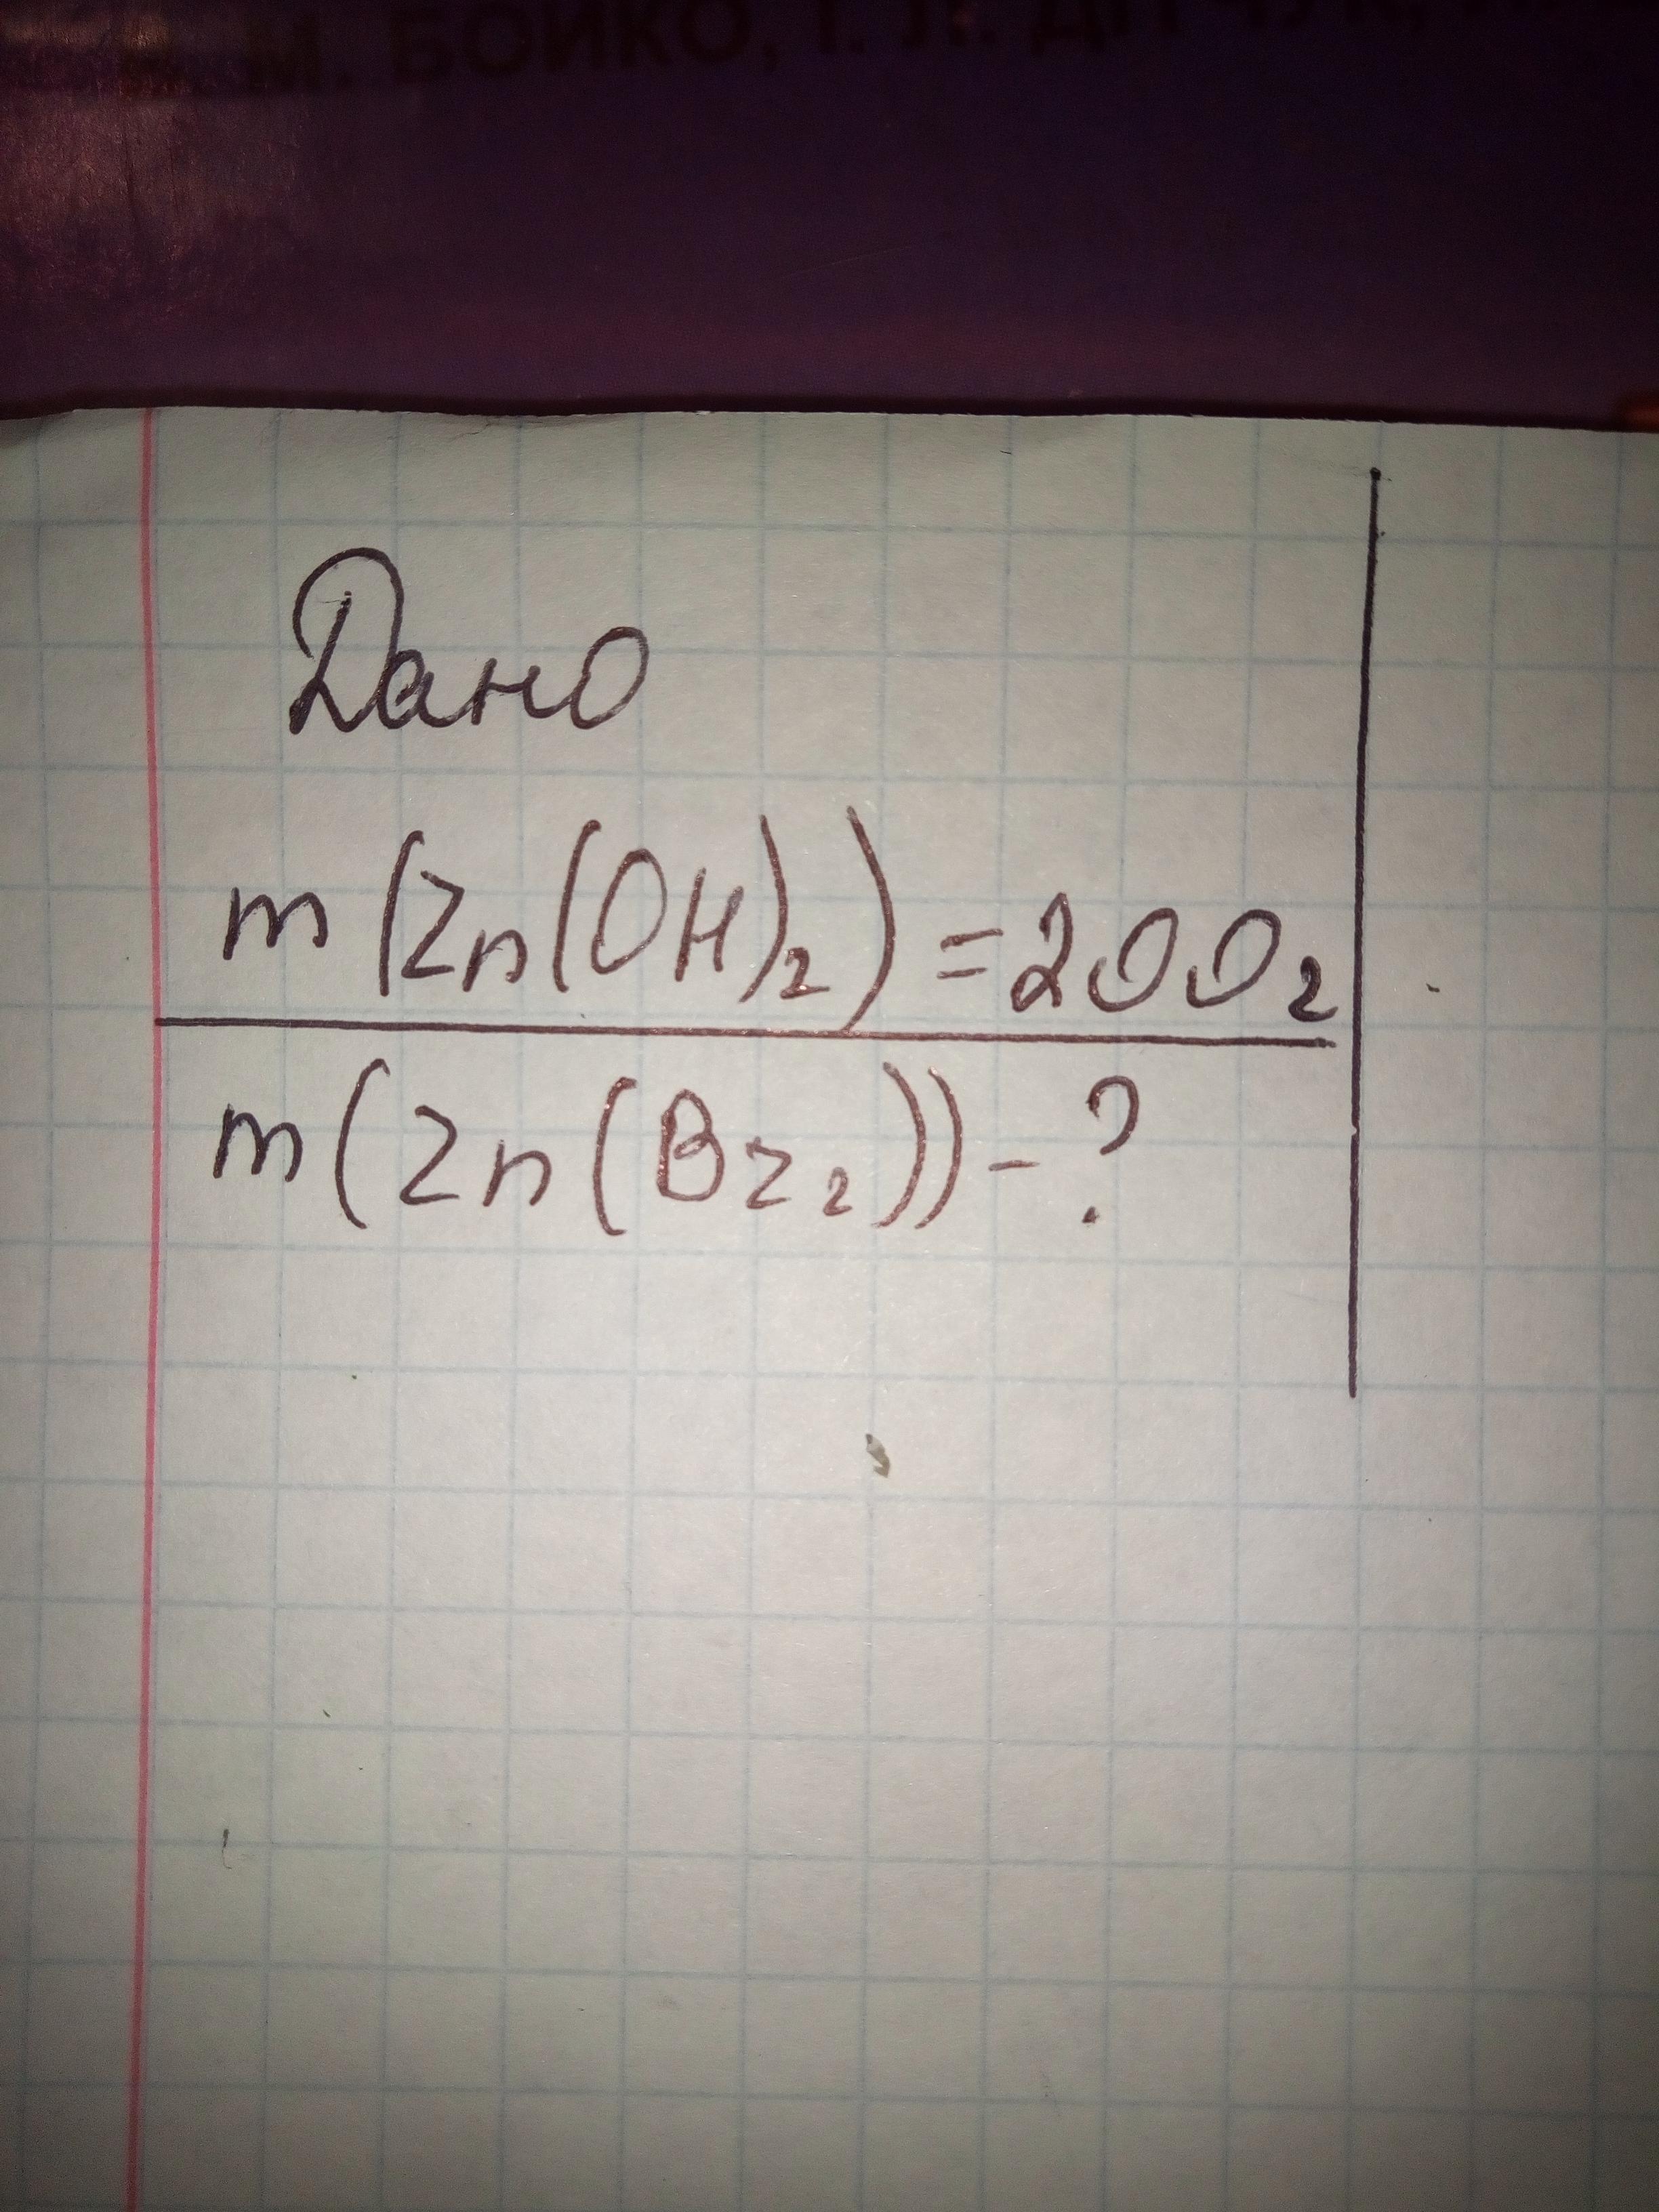 М. БОЙКО, І. Л.
Дано
m(Zn(OH)₂) = 200г
m(Zn(Br₂)) - ?